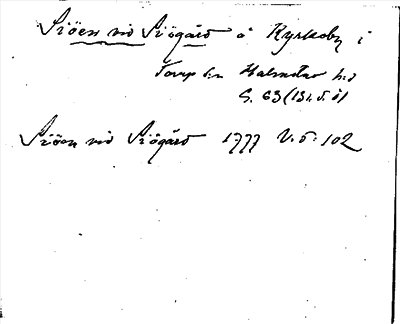 Siöen vid Siögård å Kyrkoby i
Torup sn Halmstad hd
S. 63 (131. d. ö)
Siöen vid Siögård 1777 V. d. 102